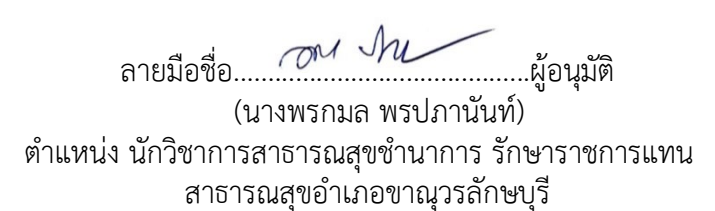 ลายมือชื่อ..........................................ผู้อนุมัติ
(นางพรกมล พรปภานันท์)
ตำแหน่ง นักวิชาการสาธารณสุขชำนาการ รักษาราชการแทน
สาธารณสุขอำเภอขาณุวรลักษบุรี